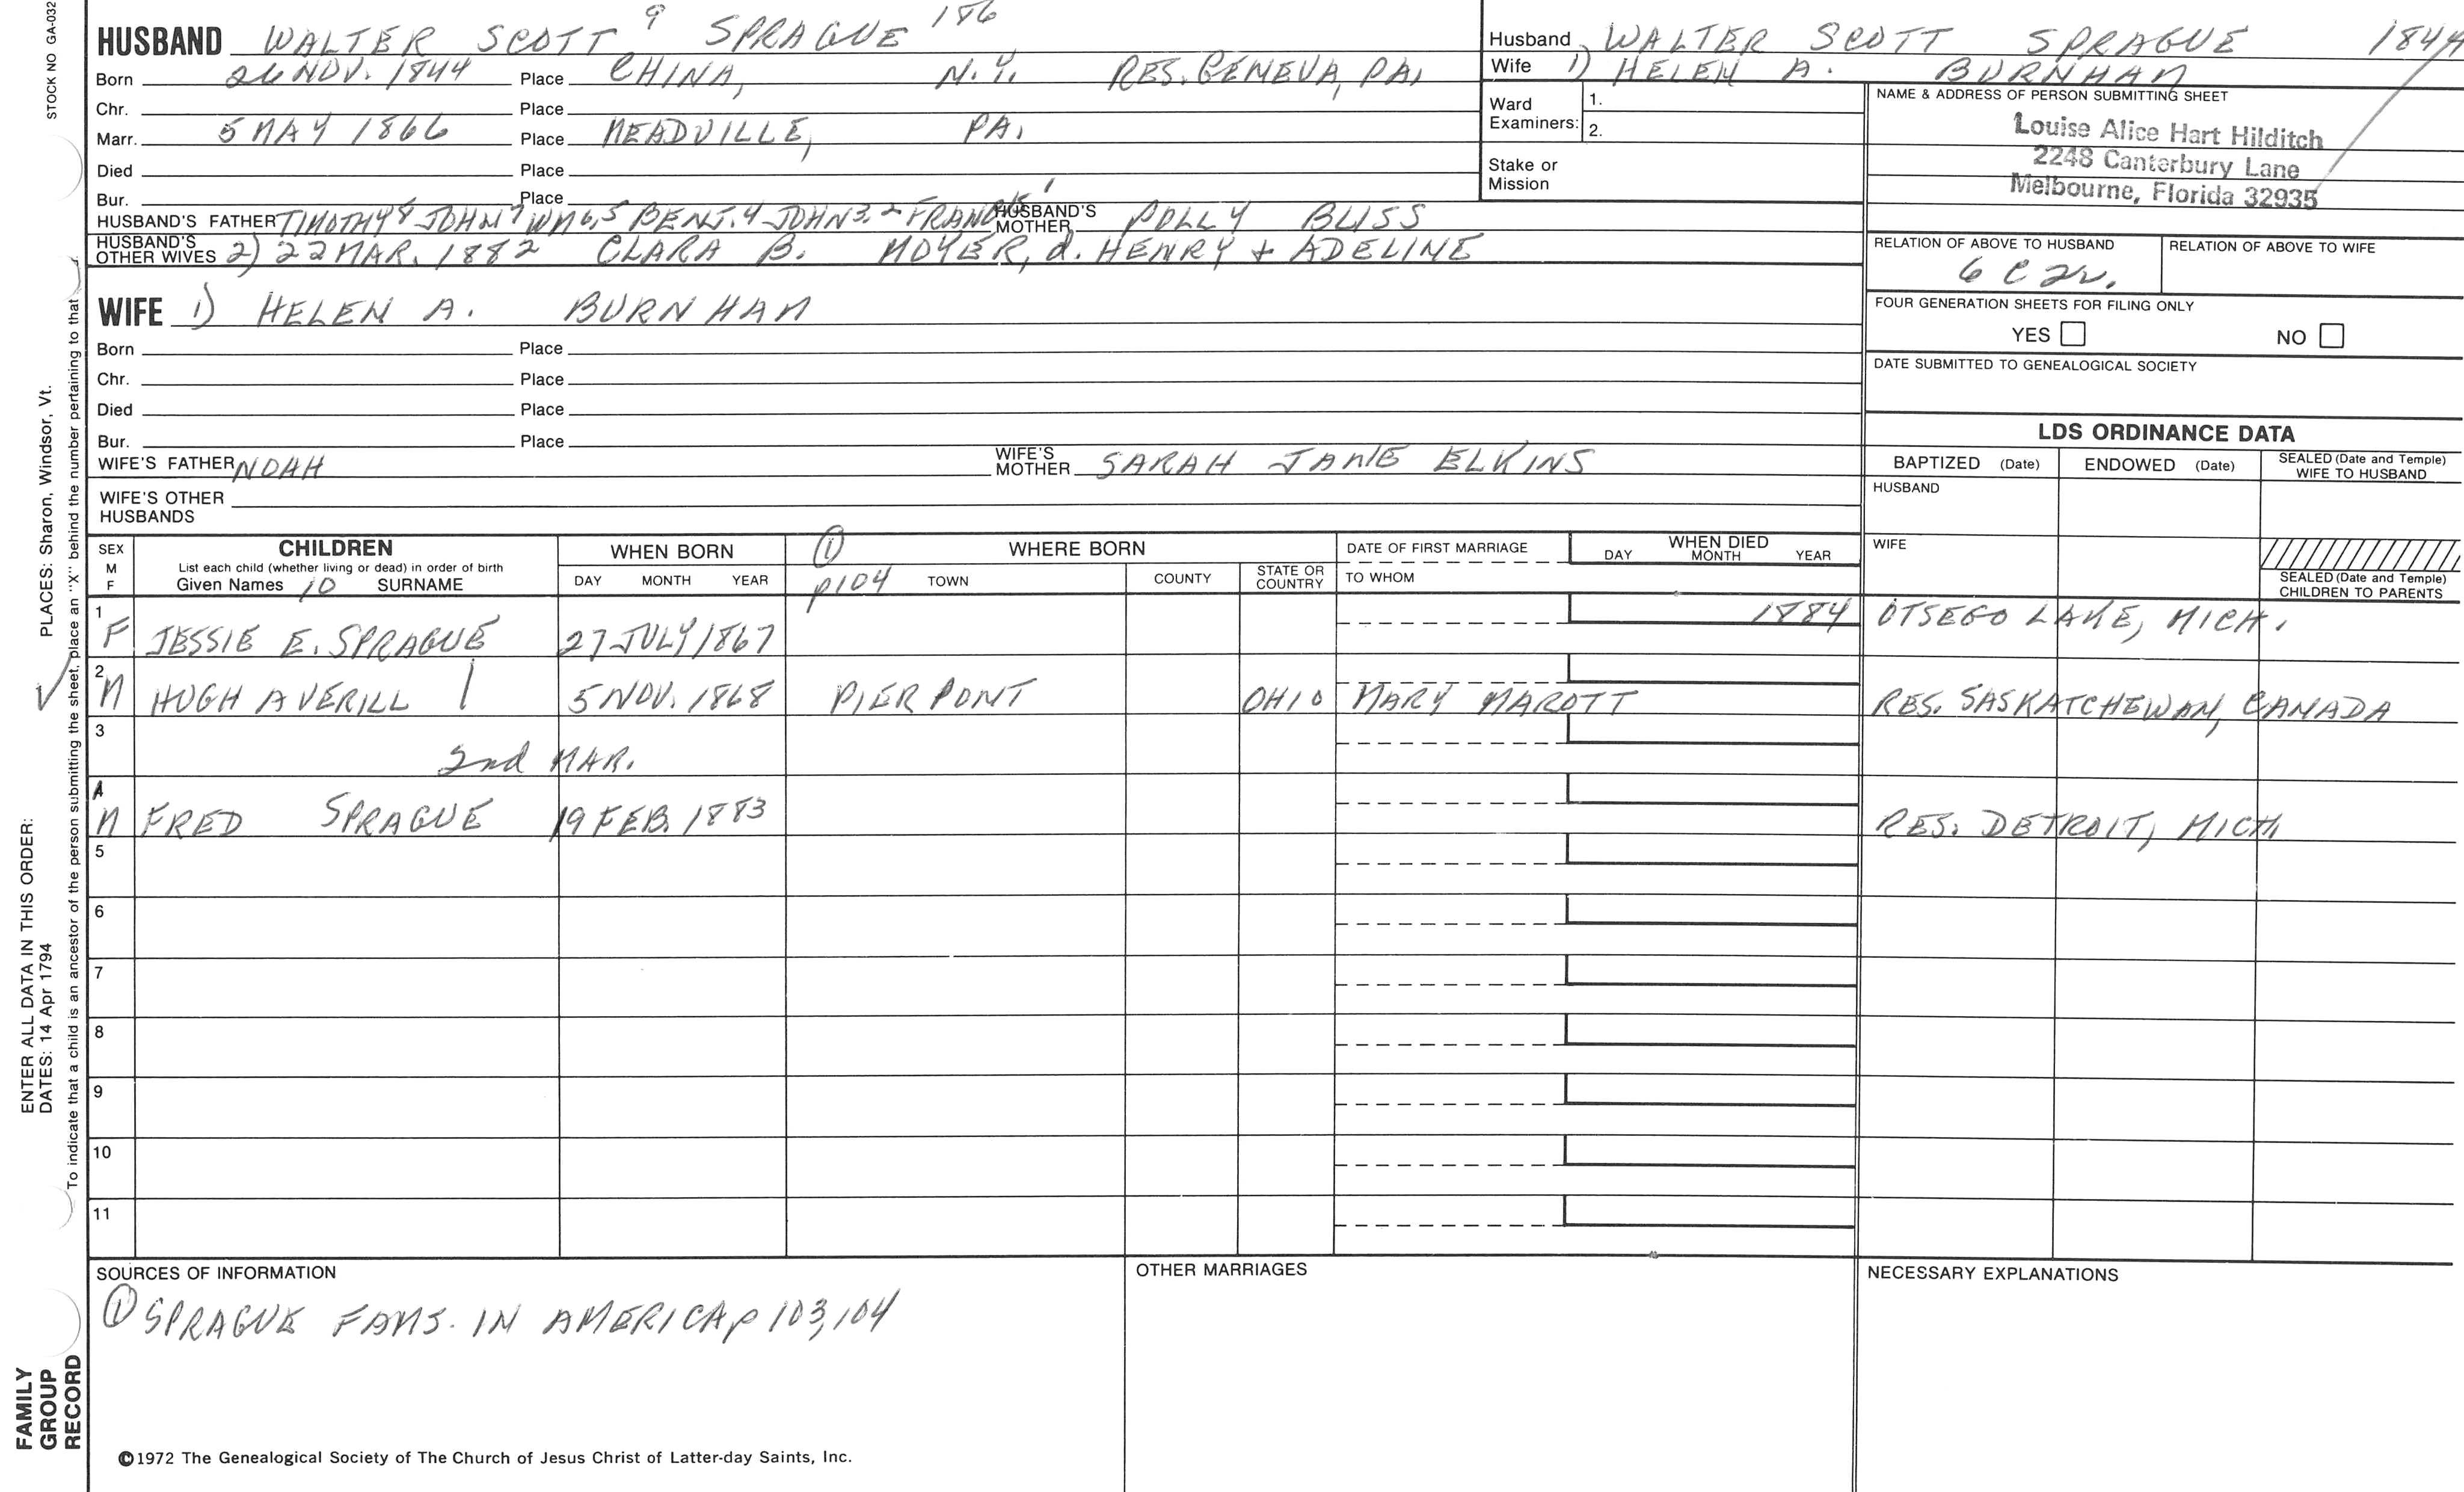 STOCK NO GA-032
HUSBAND WALTER SCOTT 9 SPRAGUE 186
Born 26 NOV. 1844 Place CHINA, N.Y. RES. GENEVA, PA.
Chr. Place
Marr. 5 MAY 1866 Place MEADVILLE, PA.
Died Place
Bur. Place
HUSBAND'S FATHER TIMOTHY 8 JOHN 7 WM 6,5 BENJ. 4 JOHN 3,2 FRANCIS 1 HUSBAND'S MOTHER POLLY BLISS
HUSBAND'S OTHER WIVES 2) 22 MAR. 1882 CLARA B. MOYER, d. HENRY + ADELINE
Husband WALTER SCOTT SPRAGUE 1844
Wife 1) HELEN A. BURNHAM
Ward Examiners: 1.
2.
Stake or Mission
NAME & ADDRESS OF PERSON SUBMITTING SHEET
Louise Alice Hart Hilditch
2248 Canterbury Lane
Melbourne, Florida 32935
RELATION OF ABOVE TO HUSBAND RELATION OF ABOVE TO WIFE
6 C 2r.
FOUR GENERATION SHEETS FOR FILING ONLY
YES NO
DATE SUBMITTED TO GENEALOGICAL SOCIETY
WIFE 1) HELEN A. BURNHAM
Born Place
Chr. Place
Died Place
Bur. Place
WIFE'S FATHER NOAH WIFE'S MOTHER SARAH JANE ELKINS
WIFE'S OTHER HUSBANDS
LDS ORDINANCE DATA
BAPTIZED (Date) ENDOWED (Date) SEALED (Date and Temple) WIFE TO HUSBAND
HUSBAND
WIFE
SEALED (Date and Temple) CHILDREN TO PARENTS
SEX M F CHILDREN
List each child (whether living or dead) in order of birth
Given Names 10 SURNAME
WHEN BORN
DAY MONTH YEAR
① p104 WHERE BORN
TOWN COUNTY STATE OR COUNTRY
DATE OF FIRST MARRIAGE
TO WHOM
WHEN DIED
DAY MONTH YEAR
1 F JESSIE E. SPRAGUE 27 JULY 1867 1884 OTSEGO LAKE, MICH.
2 M HUGH AVERILL | 5 NOV. 1868 PIERPONT OHIO MARY MAROTT RES. SASKATCHEWAN, CANADA
3 2nd MAR.
4 M FRED SPRAGUE 19 FEB. 1883 RES. DETROIT, MICH.
5
6
7
8
9
10
11
SOURCES OF INFORMATION
① SPRAGUE FAMS. IN AMERICA p 103, 104
OTHER MARRIAGES
NECESSARY EXPLANATIONS
©1972 The Genealogical Society of The Church of Jesus Christ of Latter-day Saints, Inc.
FAMILY GROUP RECORD
ENTER ALL DATA IN THIS ORDER:
DATES: 14 Apr 1794
PLACES: Sharon, Windsor, Vt.
To indicate that a child is an ancestor of the person submitting the sheet, place an "X" behind the number pertaining to that